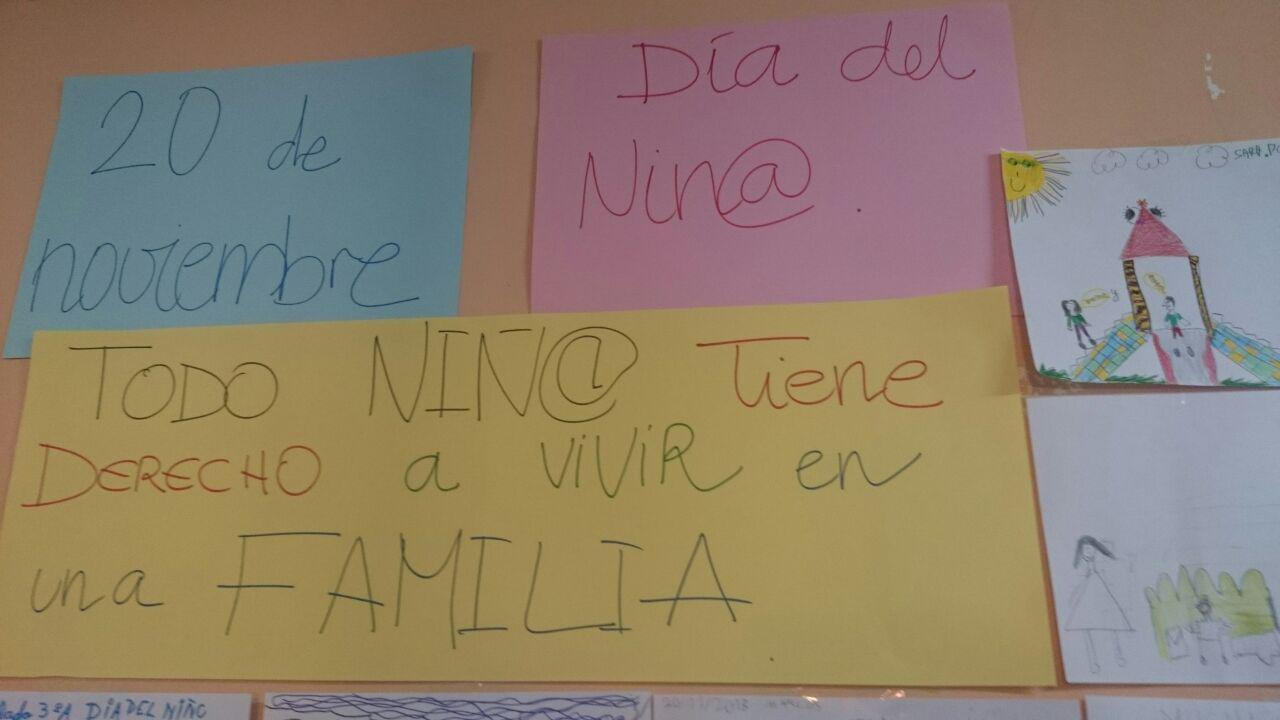 20 de
noviembre
Día del
Nin@.
TODO NIN@ Tiene
DERECHO a ViViR en
una FAMILIA
SARA.
3ºA DÍA DEL NIÑO